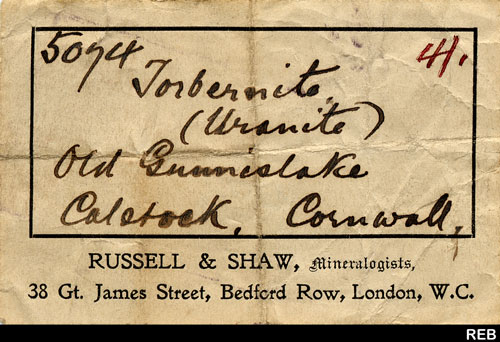 5074 4/.
Torbernite.
(Uranite)
Old Gunnislake
Calstock, Cornwall,
RUSSELL & SHAW, Mineralogists,
38 Gt. James Street, Bedford Row, London, W.C.
REB